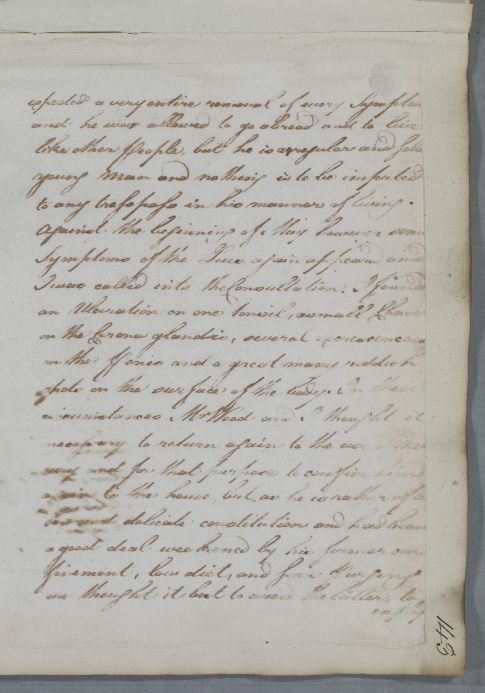 expected a very entire removal of every Symptom
and he was allowed to go abroad and to live
like other People, but he is a regular and
young man and nothing is to be imputed
to any trespass in his manner of living.
Against the beginning of May however some
Symptoms of the Lues again appeared and
I was called into the Consultation. I found
an Ulceration on one tonsil, a small Chancre
on the Corona glandis, several excrescences
on the Penis and a great many reddish
spots on the surface of the body. In these
circumstances Mr Wood and I thought it
necessary to return again to the use
and for that purpose to confine him
again to the house, but as he is rather of a
delicate constitution and had been
a good deal weakened by his former con
finement, low diet, and
we thought it best to the latter, to
employ
143